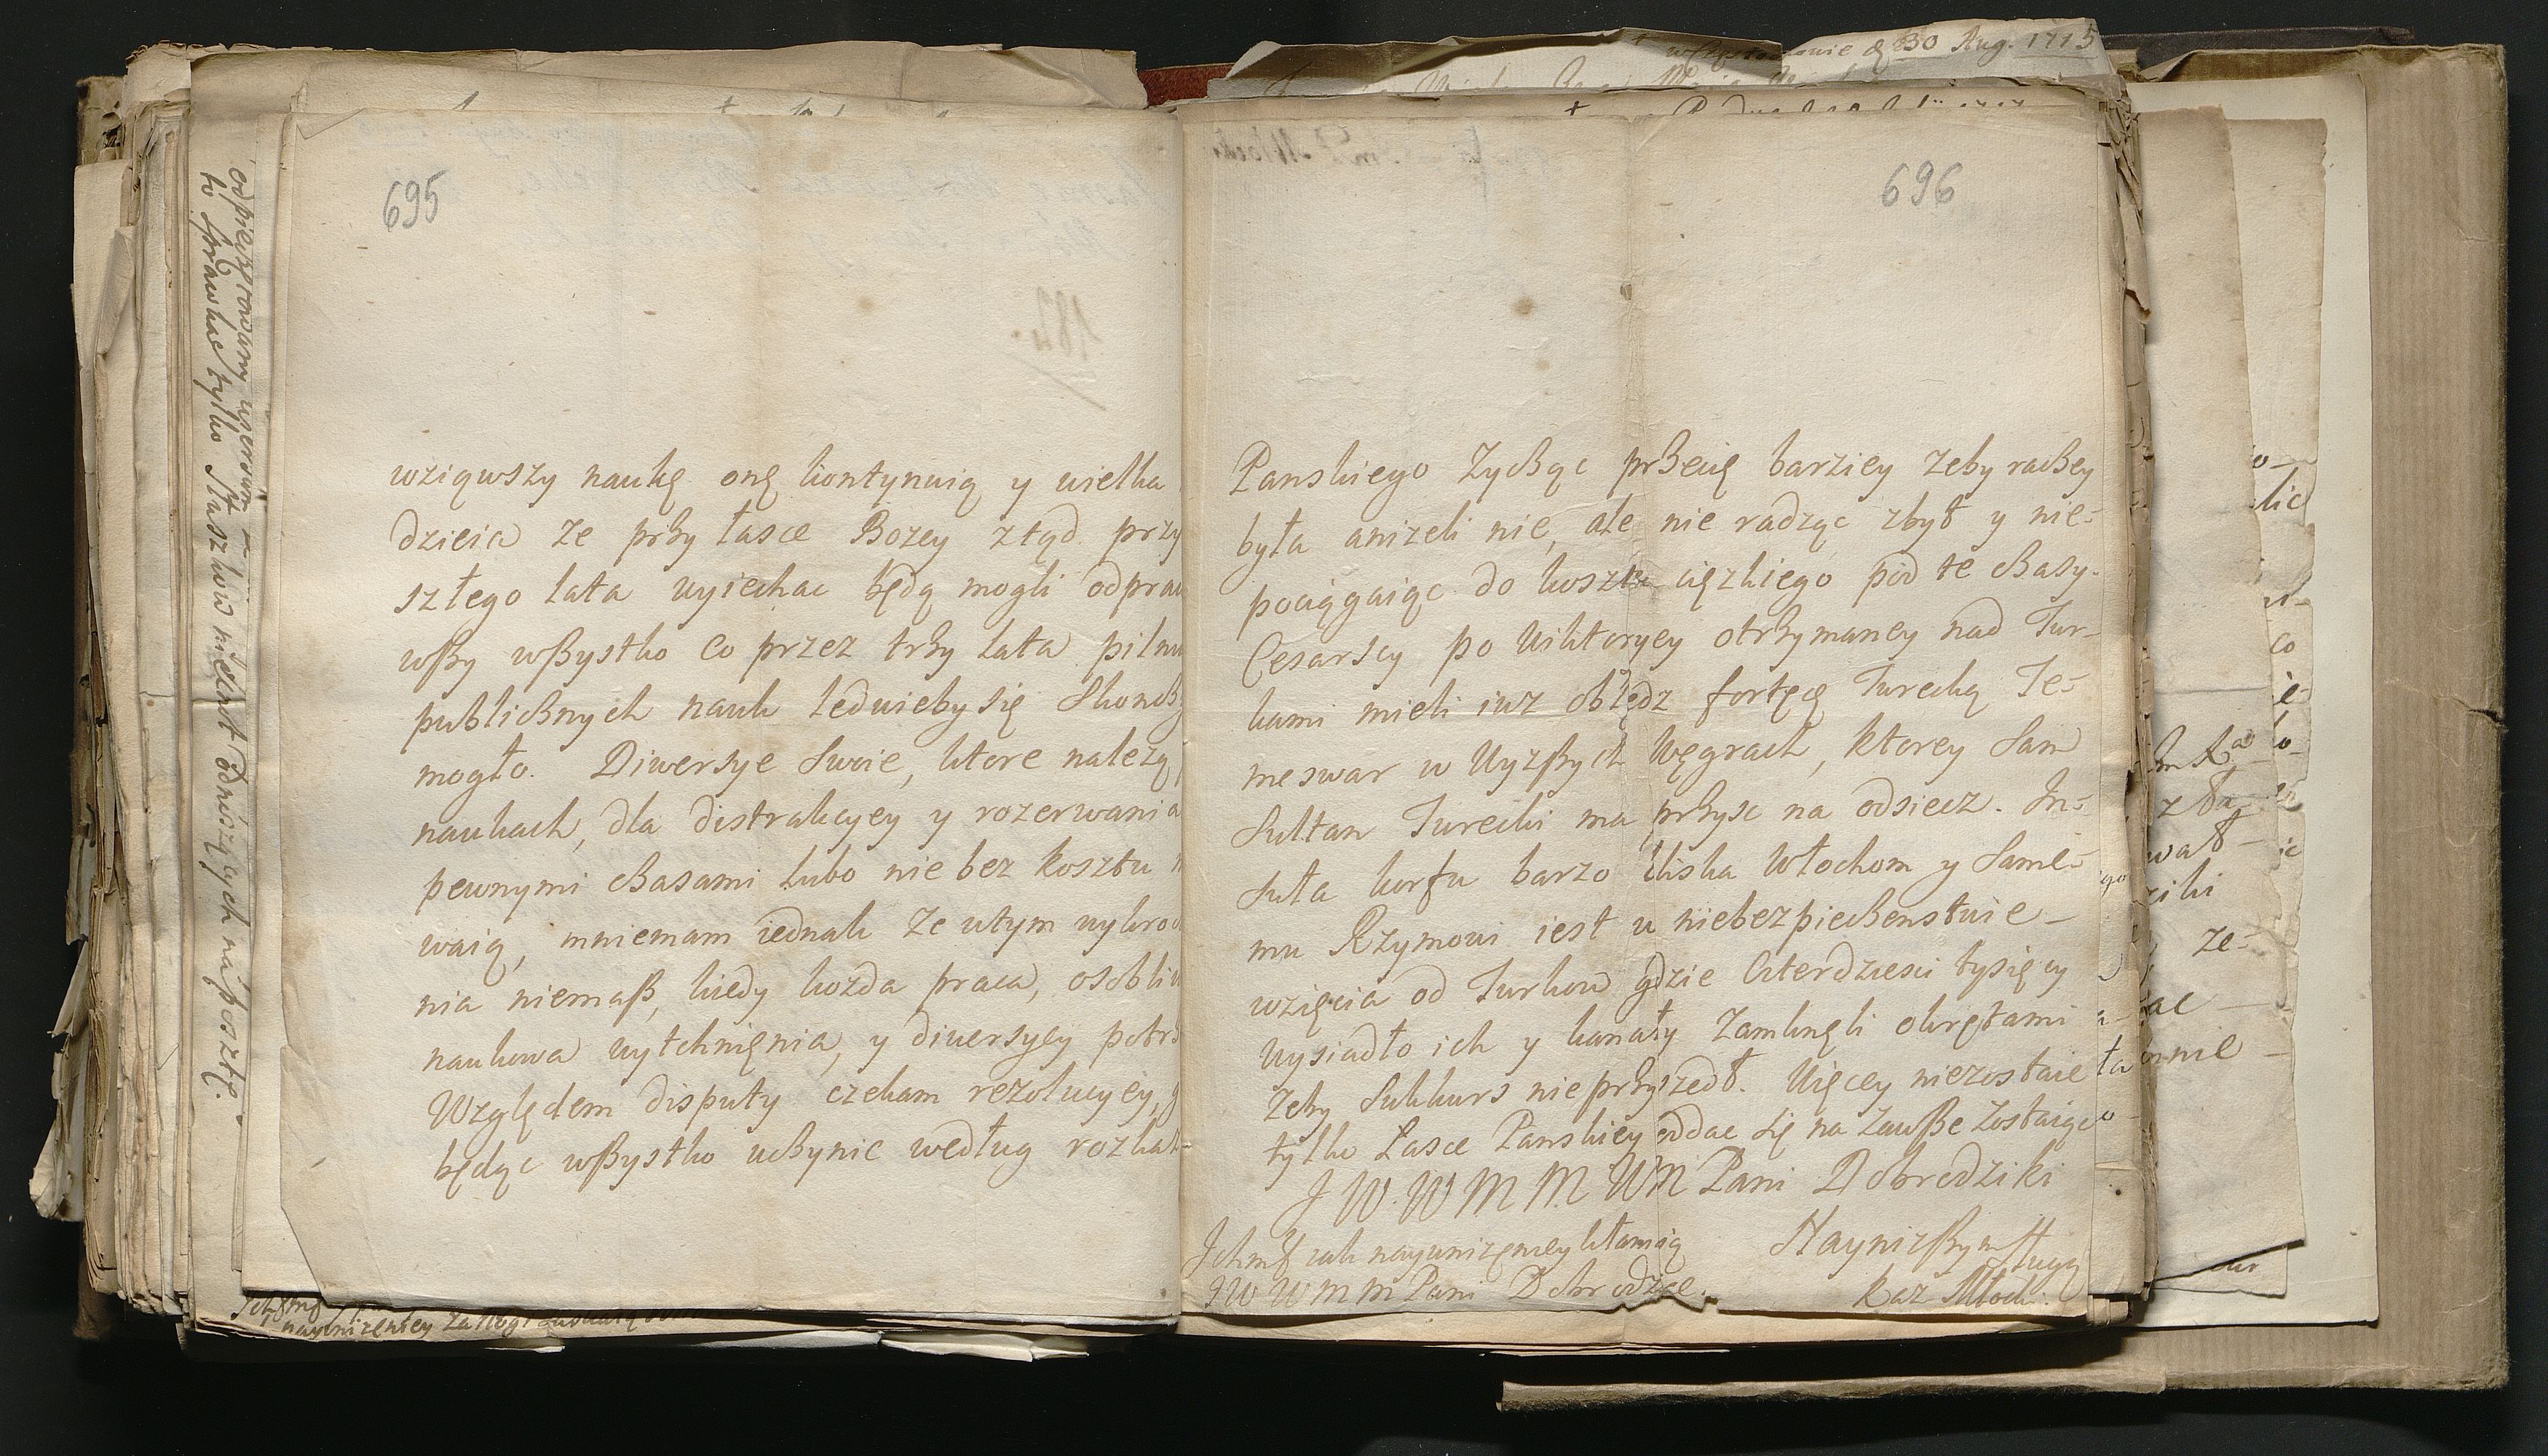 w Częstochowie d 30 Aug. 1715
695
wziąwszy naukę onę kontynuią y wielka
dzieia że przy łasce Bozey ztąd przy
szłego lata wyiechac będą mogli odpraw
wszy wszystko co przez trzy lata pilnu
publicznych nauk ledwieby się skonczy
mogło. Diwersye swoie, ktore należą
naukach, dla distrakcyey y rozerwania
pewnymi czasami lubo nie bez kosztu
waią, mniemam iednak że w tym wykro
nia niemasz, kiedy kożda praca, osobliw
naukowa wytchnięnia, y diwersyey potrz
Względem disputy czekam rezolucyey, g
będąc wszystko uczynic według rozkaz
696
Panskiego Zycząc przecię barziey zeby raczey
była anizeli nie, ale nie radząc zbyt y nie-
pociągaiąc do kosztu cięzkiego pod te czasy.
Cesarscy po Wiktoryey otrzymaney nad Tur-
kami mieli iuz oblędz fortęcę Turecką Te-
meswar w Wyzszych Węgrach, ktorey Sam
Sułtan Turecki ma przysc na odsiecz. In-
suła korfu barzo bliska Włochom y Same-
mu Rzymowi iest w niebezpieczenstwie
wzięcia od Turkow gdzie czterdziesci tysięcy
wysiadło ich y kanały zamknęli okrętami
zeby Sukkurs nie przyszedł. Więcey niezostaie
tylko Łasce Panskiey oddac się na zawsze zostaiąc
J W. W M M W M Pani Dobrodziki
Naynizszym sługą
Kaz Młock.
Ichmsc iak nayunizęniey kłaniaią
JW W m m Pani Dobrodzce.
odpieczętowany
to sprawkac tylko Staszkow kielkut odnoszących na pocztę.